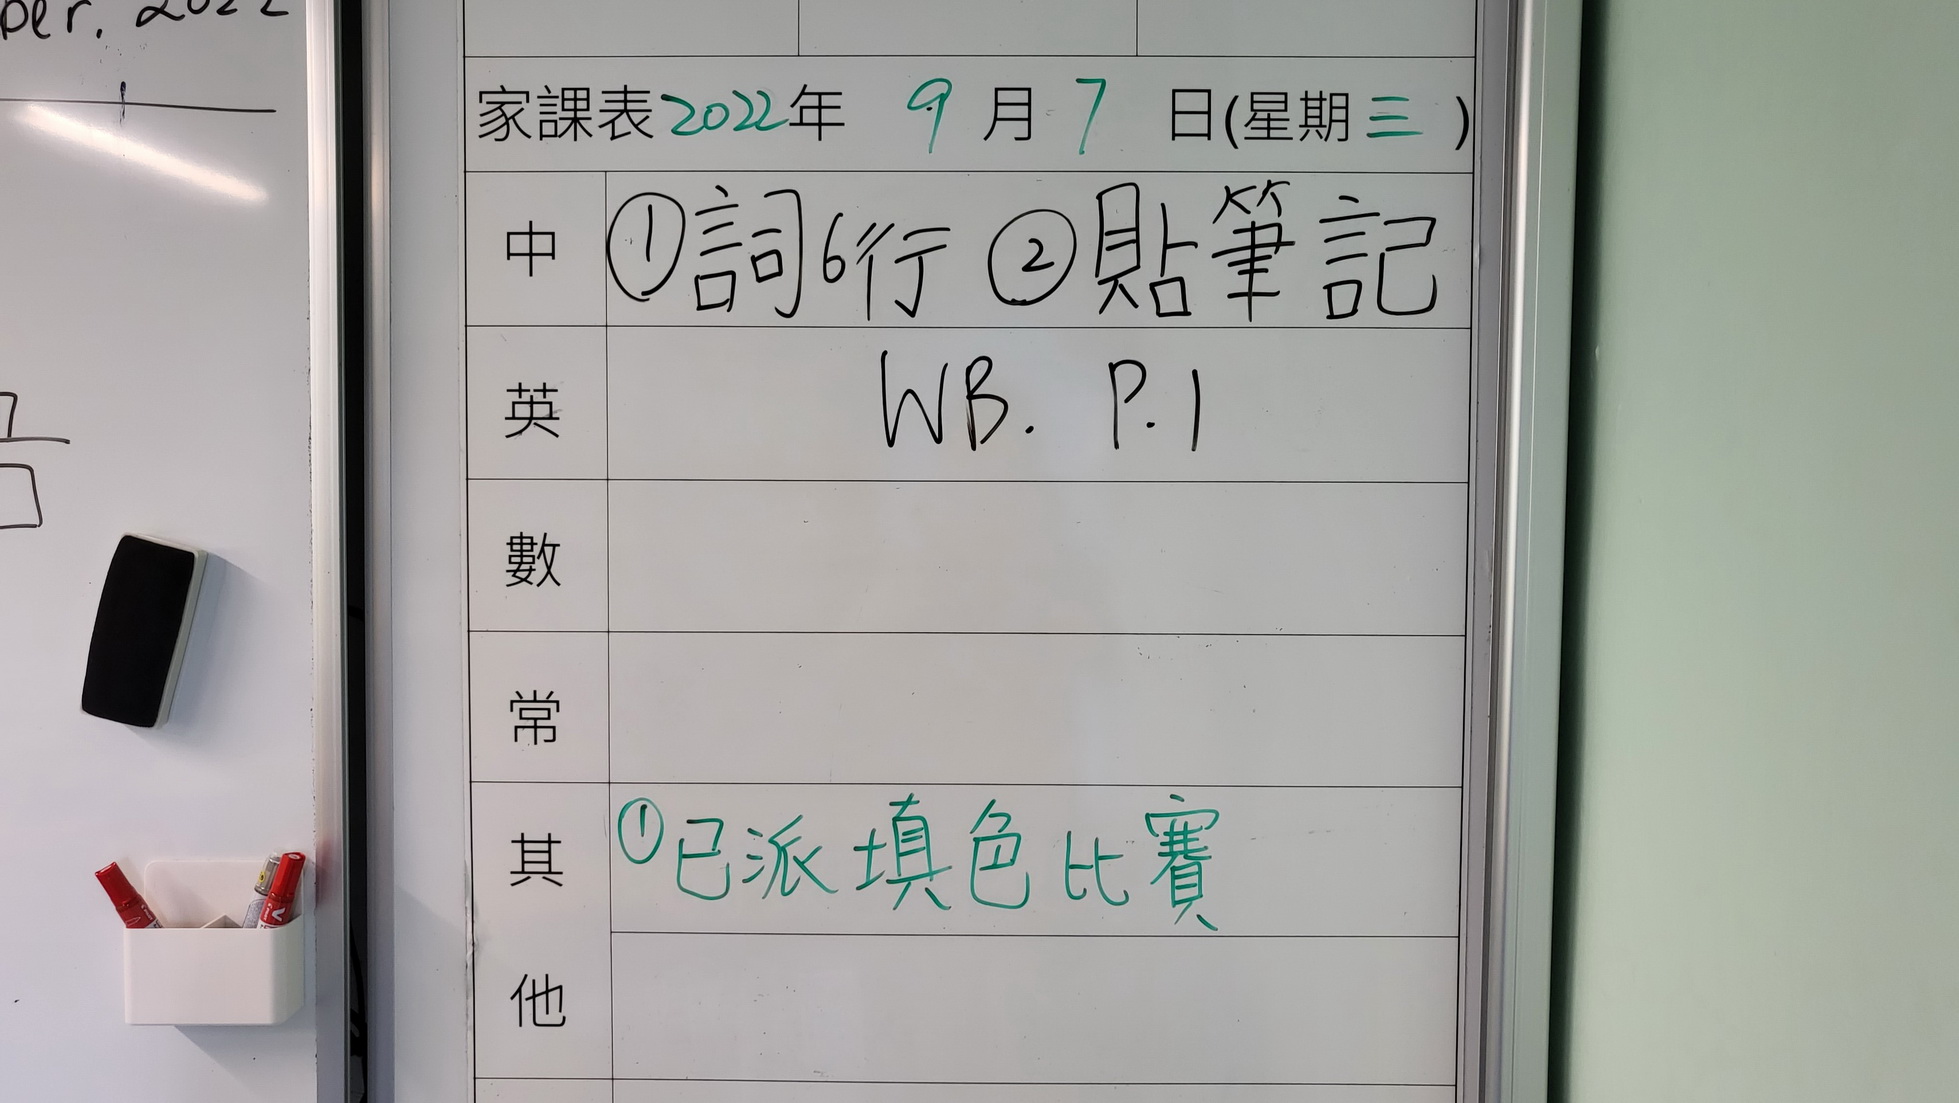 2022
家課表2022年 9月7日(星期三)
中 ①詞6行 ②貼筆記
英 WB. P.1
數
常
其他 ①已派填色比賽